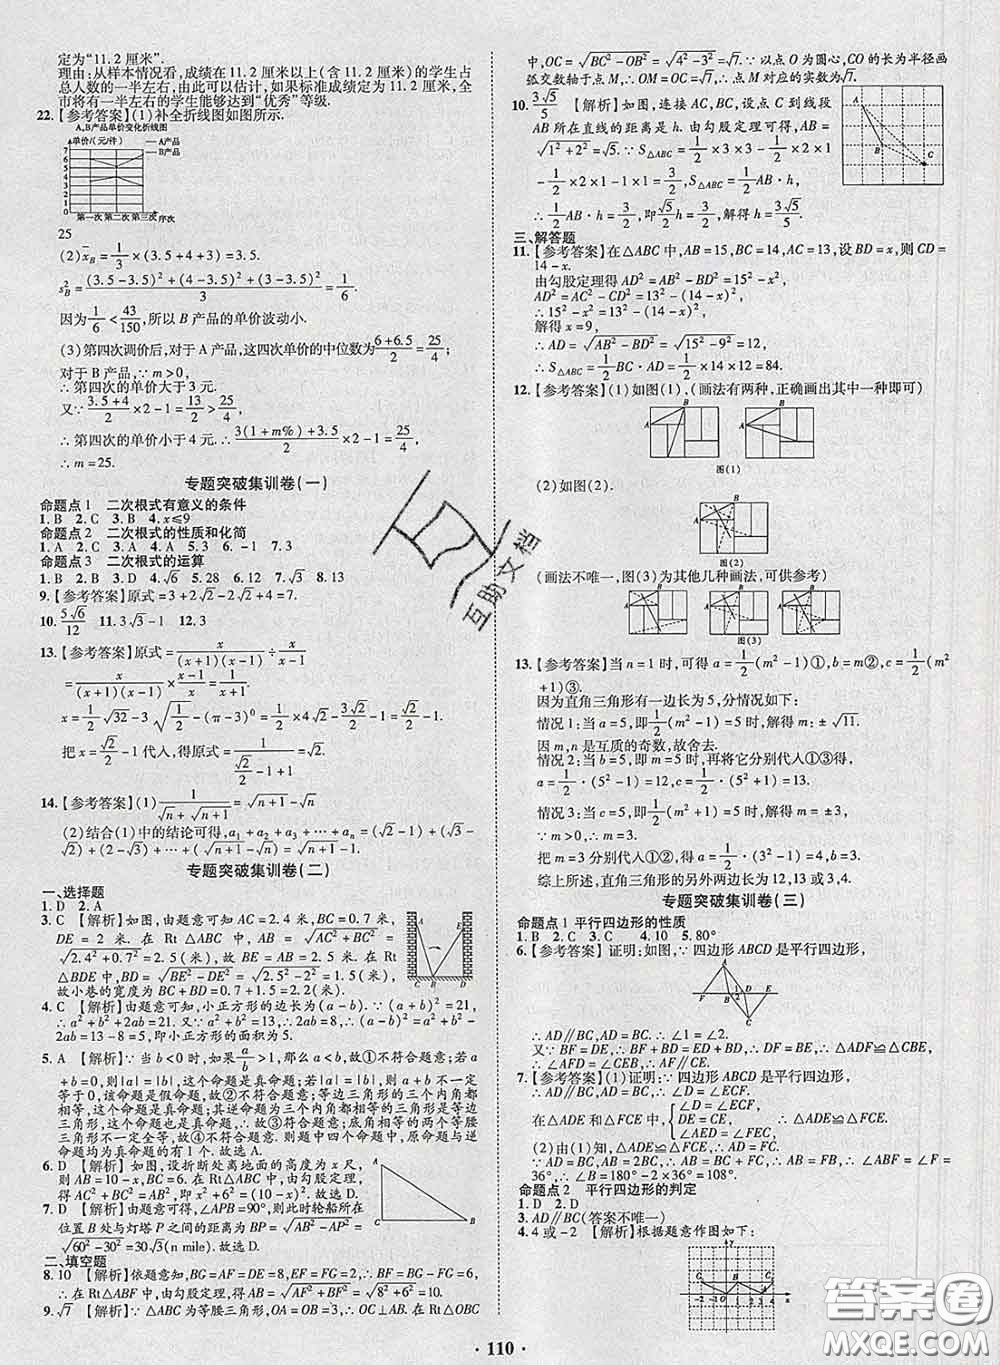 定为“11.2厘米”.
理由:从样本情况看,成绩在11.2厘米以上(含11.2厘米)的学生占
总人数的一半左右,由此可以估计,如果标准成绩定为11.2厘米,全
市将有一半左右的学生能够达到“优秀”等级.
22.【参考答案】(1)补全折线图如图所示.
A,B产品单价变化折线图
单价/(元/件)
A产品
B产品
7
6
5
4
3
2
1
0
第一次 第二次 第三次 序次
25
(2)x̄_B=1/3×(3.5+4+3)=3.5.
s²_B=[(3-3.5)²+(4-3.5)²+(3.5-3.5)²]/3=1/6.
因为1/6<43/150,所以B产品的单价波动小.
(3)第四次调价后,对于A产品,这四次单价的中位数为(6+6.5)/2=25/4;
对于B产品,∵m>0,
∴第四次的单价大于3元.
又∵(3.5+4)/2×2-1=13/2>25/4,
∴第四次的单价小于4元.∴[3(1+m%)+3.5]/2×2-1=25/4,
∴m=25.
专题突破集训卷(一)
命题点1 二次根式有意义的条件
1.B 2.C 3.B 4.x≤9
命题点2 二次根式的性质和化简
1.A 2.C 3.A 4.A 5.3 6.-1 7.3
命题点3 二次根式的运算
1.B 2.B 3.D 4.√6 5.28 6.12 7.3 8.13
9.【参考答案】原式=3+2√2-√2+4√2=7.
10.5√6/12 11.3√3-1 12.3
13.【参考答案】原式=x/[(x+1)(x-1)]÷x/(x-1)
=x/[(x+1)(x-1)]×(x-1)/x=1/(x+1).
x=1/2√32-3√(1/2)-(π-3)⁰=1/2×4√2-3√2/2-1=√2/2-1.
把x=√2/2-1代入,得原式=1/(√2/2-1+1)=√2.
14.【参考答案】(1)1/(√n+√(n+1))=√(n+1)-√n.
(2)结合(1)中的结论可得,a₁+a₂+a₃+⋯+aₙ=(√2-1)+(√3-
√2)+(2-√3)+(√5-2)+⋯+(√(n+1)-√n)=√(n+1)-1.
专题突破集训卷(二)
一、选择题
1.D 2.A
3.C 【解析】如图,由题意可知AC=2.4米,BC=0.7米,
DE=2米.在Rt△ABC中,AB=√(AC²+BC²)=
√(2.4²+0.7²)=2.5(米),故BE=AB=2.5米.在Rt
△BDE中,BD=√(BE²-DE²)=√(2.5²-2²)=1.5(米),
故小巷的宽度为BC+BD=0.7+1.5=2.2(米).
A
E
C B D
4.C 【解析】由题意可知,小正方形的边长为(a-b).∵(a+b)²=21,
∴a²+b²+2ab=21.∵a²+b²=13,∴2ab=8,∴(a-b)²=a²+b²-
2ab=13-8=5,即小正方形的面积为5.
5.A 【解析】当b<0时,如果a/b>1,那么a<b,故①不符合题意;若a=b,
则|a|=|b|,这个命题是真命题;若|a|=|b|,则a和b不一定
等于0,该命题是假命题,故②不符合题意;等边三角形的三个内角都
相等,这个命题是真命题;其逆命题为三个内角都相等的三角形是等
边三角形,这个命题也是真命题,故③符合题意;底角相等的两个等腰
三角形不一定全等,故④不符合题意.则四个命题中,原命题与逆命题
均为真命题的有1个.故选A.
6.D 【解析】如图,设折断处离地面的高度为x尺,
则AB=10-x,BC=6.在Rt△ABC中,
AC²+BC²=AB²,即x²+6²=(10-x)².故选D.
A
C
B
7.D 【解析】由题意可得,∠APB=90°,此时轮船所在
位置B处与灯塔P之间的距离BP=√(AB²-AP²)=
√(60²-30²)=30√3(n mile).故选D.
二、填空题
8.10 【解析】依题意知,BG=AF=DE=8,EF=FG=2,∴BF=BG-FG=6,
∴在Rt△ABF中,由勾股定理,得AB=√(AF²+BF²)=√(8²+6²)=10.
9.√7 【解析】∵△ABC为等腰三角形,OA=OB=3,∴OC⊥AB.在Rt△OBC
中,OC=√(BC²-OB²)=√(4²-3²)=√7.∵以点O为圆心,CO的长为半径画
弧交数轴于点M,∴OM=OC=√7,∴点M对应的实数为√7.
10.3√5/5 【解析】如图,连接AC,BC,设点C到线段
AB所在直线的距离是h.由勾股定理可得,AB=
√(1²+2²)=√5.∵S△ABC=1/2×3×3-1/2×2×1
-1/2×2×1-1×1=3/2,S△ABC=1/2AB·h,
∴1/2AB·h=3/2,即√5/2h=3/2,解得h=3√5/5.
A
B
C
三、解答题
11.【参考答案】在△ABC中,AB=15,BC=14,AC=13,设BD=x,则CD=
14-x.
由勾股定理得AD²=AB²-BD²=15²-x²,
AD²=AC²-CD²=13²-(14-x)²,
∴15²-x²=13²-(14-x)²,
解得x=9,
∴AD=√(AB²-BD²)=√(15²-9²)=12,
∴S△ABC=1/2BC·AD=1/2×14×12=84.
12.【参考答案】(1)如图(1),(画法有两种,正确画出其中一种即可)
A
B
A
B
图(1)
(2)如图(2).
A
B
图(2)
(画法不唯一,图(3)为其他几种画法,可供参考)
A
B
A
B
A
B
图(3)
13.【参考答案】当n=1时,可得a=1/2(m²-1)①,b=m②,c=1/2(m²
+1)③.
因为直角三角形有一边长为5,分情况如下:
情况1:当a=5,即1/2(m²-1)=5时,解得m=±√11.
因m,n是互质的奇数,故舍去.
情况2:当b=5,即m=5时,再将它分别代入①③得,
a=1/2×(5²-1)=12,c=1/2×(5²+1)=13.
情况3:当c=5,即1/2×(m²+1)=5时,解得m=±3.
∵m>0,∴m=3,
把m=3分别代入①②得,a=1/2×(3²-1)=4,b=3.
综上所述,直角三角形的另外两边长为12,13或3,4.
专题突破集训卷(三)
命题点1 平行四边形的性质
1.B 2.C 3.C 4.10 5.80°
6.【参考答案】证明:如图,∵四边形ABCD是平行四边形,
A
F
B
1
2
D
E
C
∴AD∥BC,AD=BC.∴∠1=∠2.
又∵BF=DE,∴BF+BD=ED+BD,∴DF=BE.∴△ADF≌△CBE,
∴∠AFD=∠CEB,∴AF∥CE.
7.【参考答案】(1)证明:∵四边形ABCD是平行四边形,
∴AD∥BC,AD=BC,∴∠D=∠ECF,
在△ADE和△FCE中,{∠D=∠ECF,
DE=CE,
∠AED=∠FEC, ∴△ADE≌△FCE.
(2)由(1)知,△ADE≌△FCE,∴AD=FC.
∵AD=BC,AB=2BC,∴AB=BC+FC=FB,
∴∠BAF=∠F=36°,∴∠B=180°-2×36°=108°.
命题点2 平行四边形的判定
1.D 2.D
3.AD∥BC(答案不唯一)
4.4或-2 【解析】根据题意作图如下:
y
C
B
-2 -1 O 1 2 3 4 x
· 110 ·
互助文档
答案圈
MXQE.COM